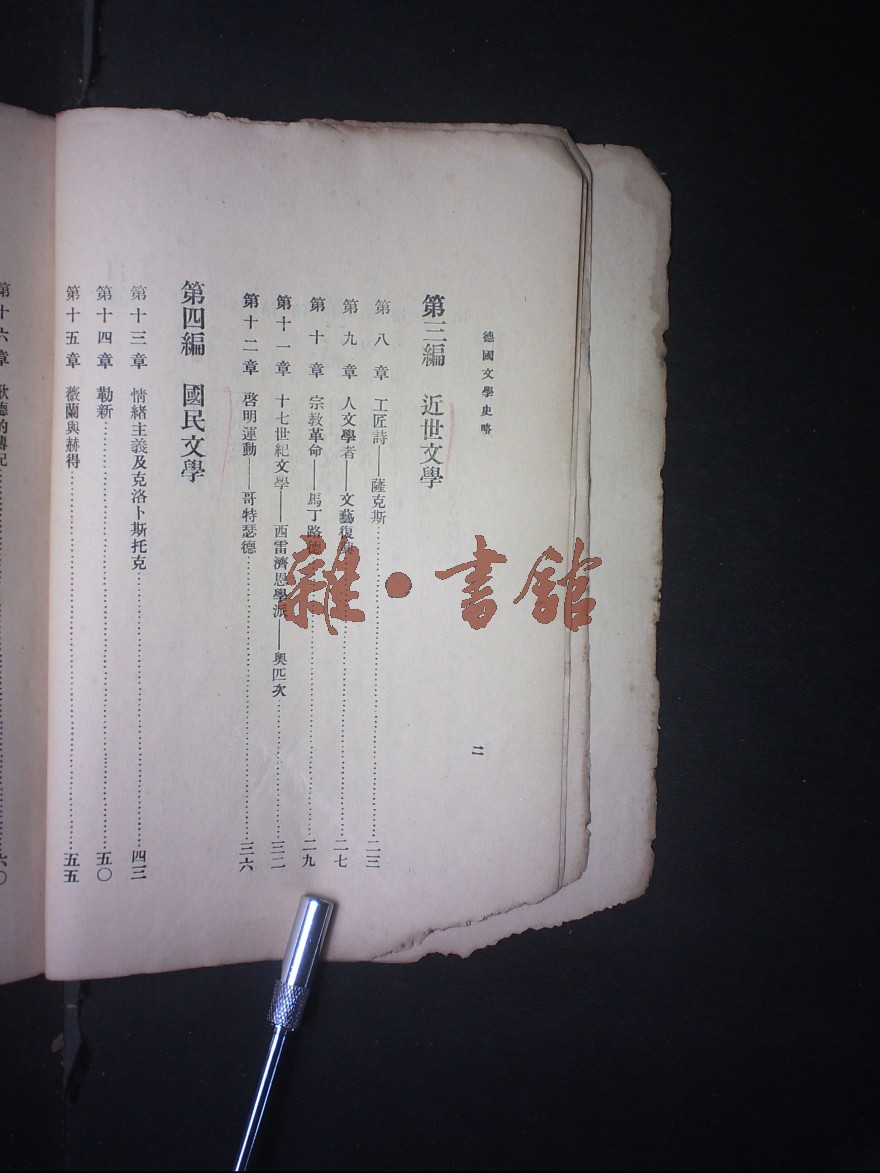 德國文學史略
二
第三編　近世文學
第八章　工匠詩——薩克斯……二三
第九章　人文學者——文藝復興……二七
第十章　宗教革命——馬丁路德……二九
第十一章　十七世紀文學——西雷濟恩學派——奧匹次……三二
第十二章　啓明運動——哥特瑟德……三六
第四編　國民文學
第十三章　情緒主義及克洛卜斯托克……四三
第十四章　勒新……五〇
第十五章　薇蘭與赫得……五五
第十六章　……六〇
雜·書館